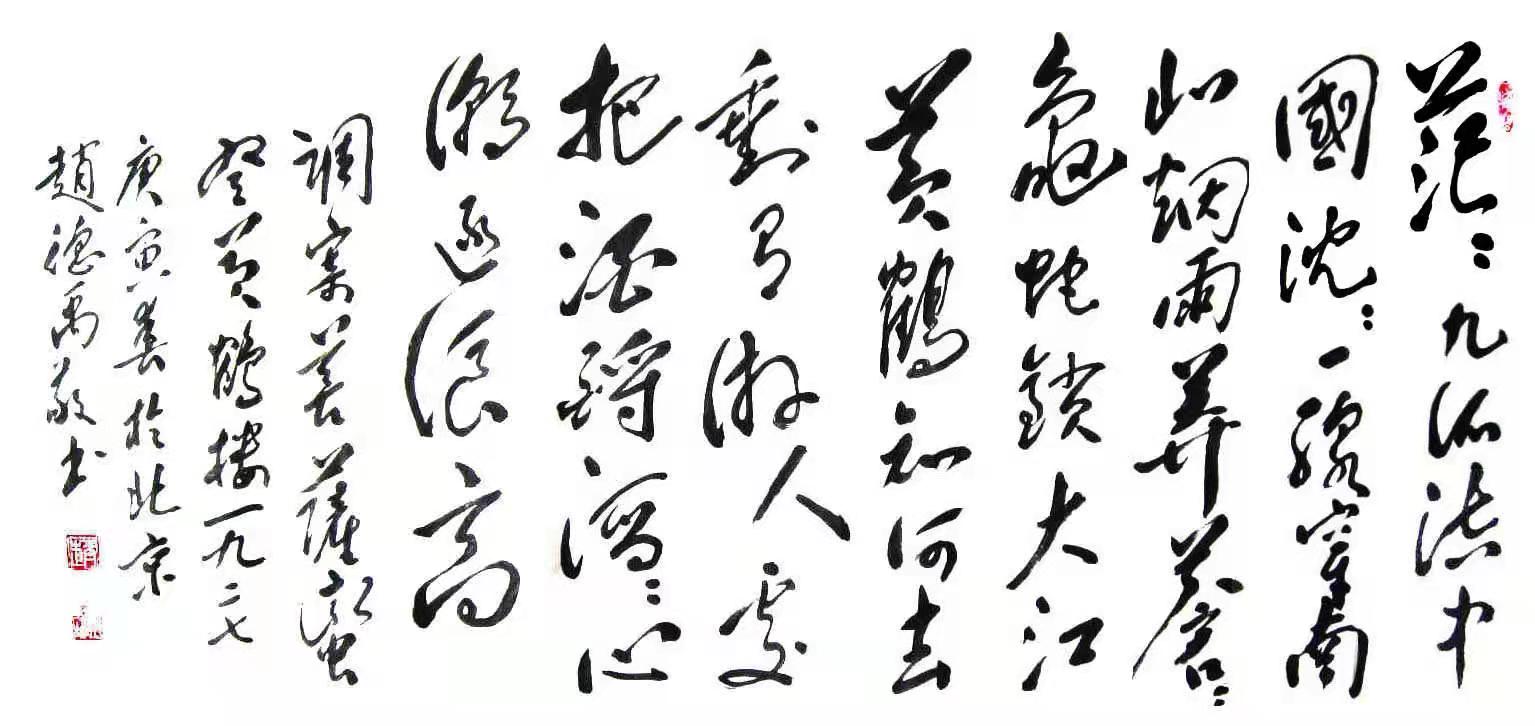 茫々九派流中
國沈々一線穿南
北烟雨莽蒼々
龜蛇鎖大江
黃鶴知何去
剩有游人處
把酒酹滔々心
潮逐浪高
調寄菩薩蠻
登黃鶴樓一九二七
庚寅春於北京
趙德禹敬書